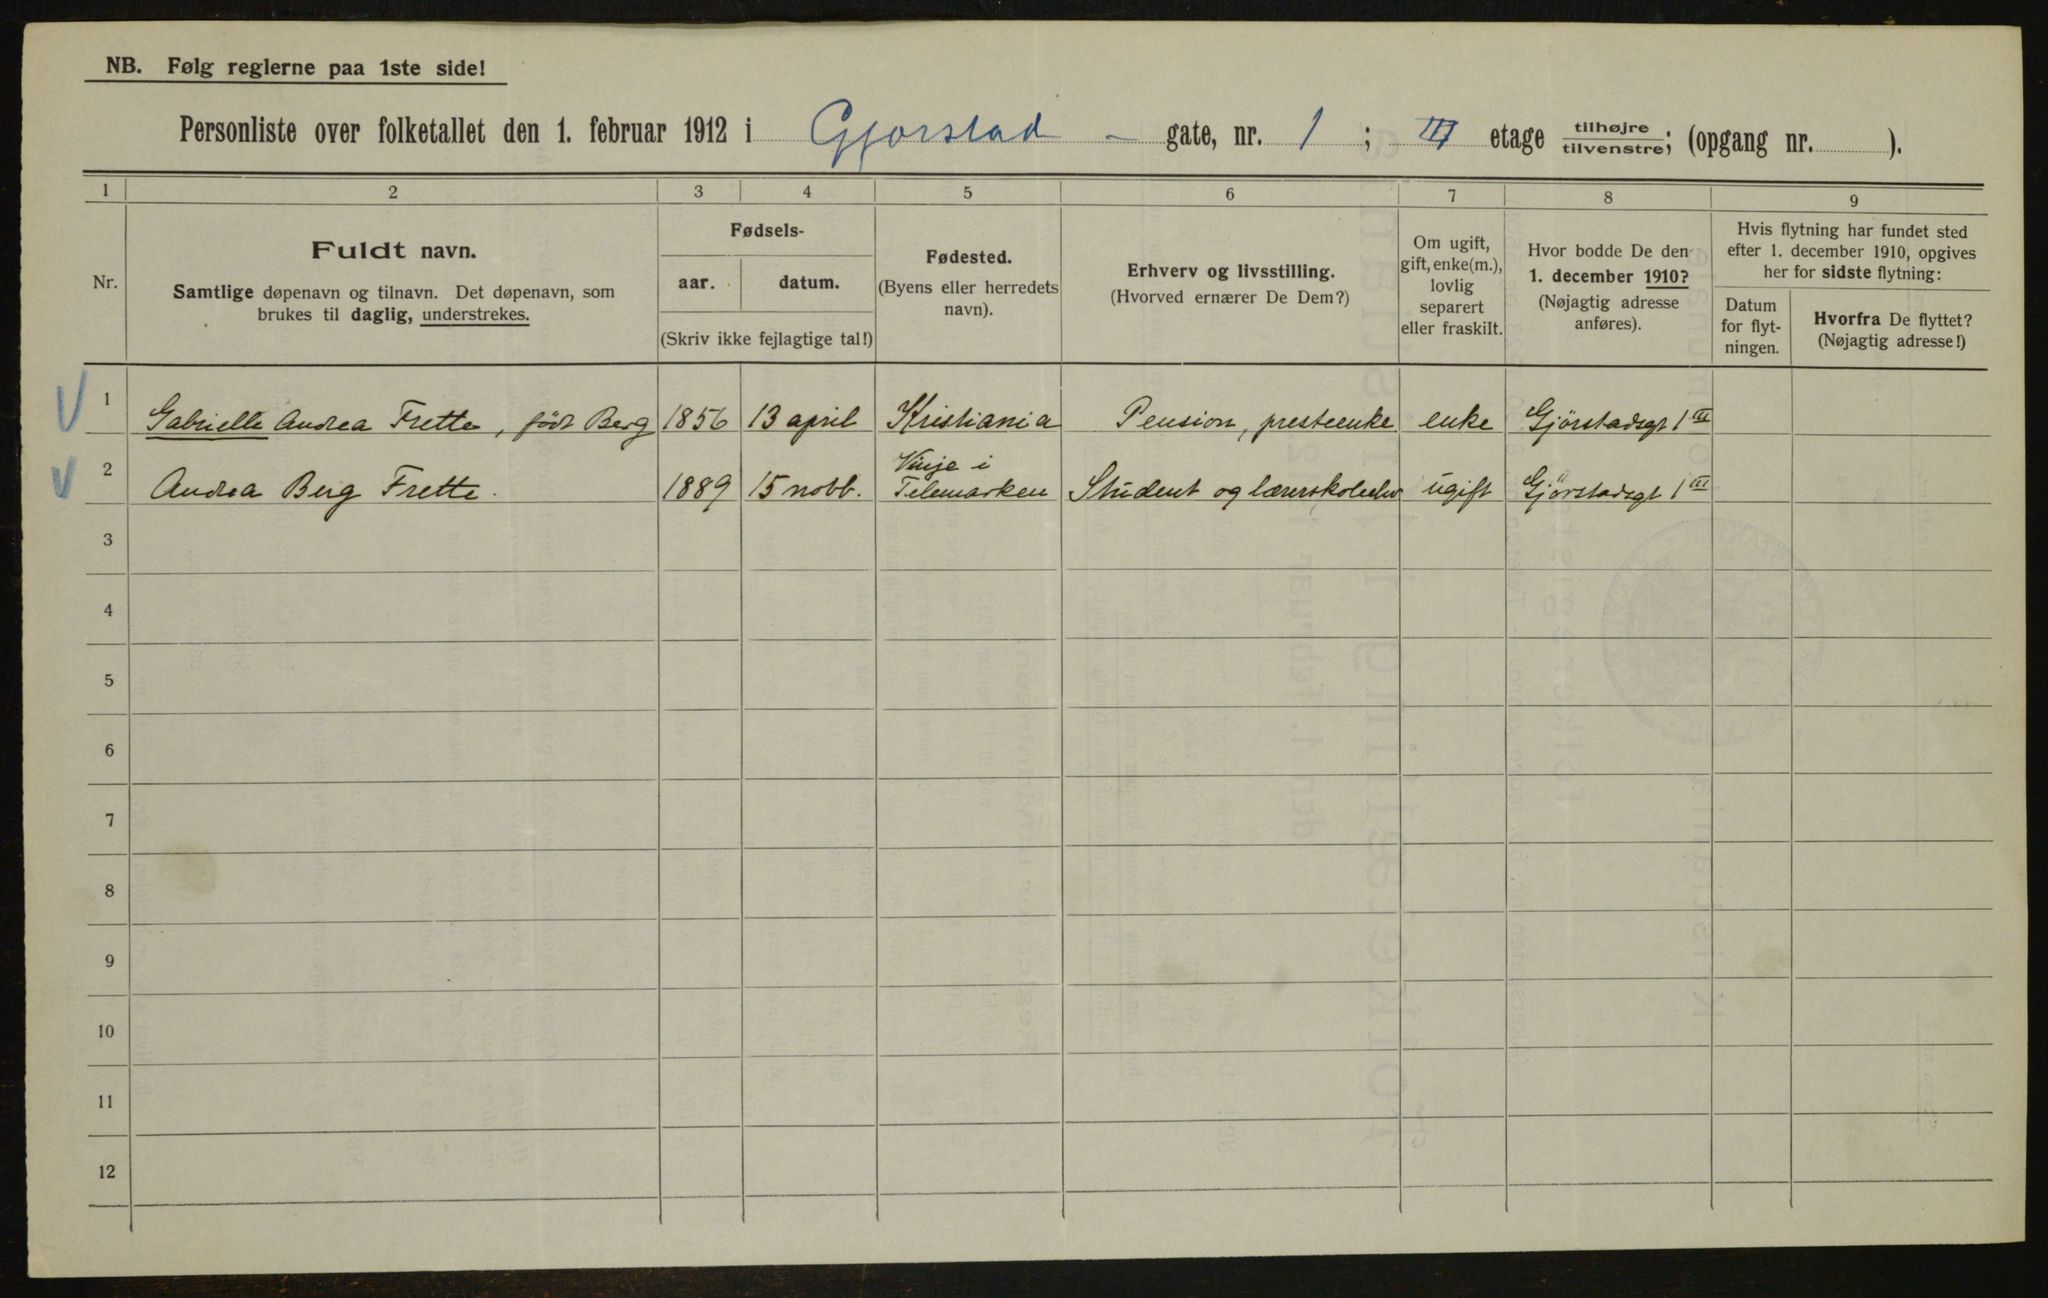 NB. Følg reglerne paa 1ste side!
Personliste over folketallet den 1. februar 1912 i Gjørstad - gate, nr. 1 ; III etage tilhøjre tilvenstre; (opgang nr. ).
1 2 3 4 5 6 7 8 9
Nr.
Fuldt navn.
Samtlige døpenavn og tilnavn. Det døpenavn, som
brukes til daglig, understrekes.
Fødsels-
aar. datum.
(Skriv ikke fejlagtige tal!)
Fødested.
(Byens eller herredets
navn).
Erhverv og livsstilling.
(Hvorved ernærer De Dem?)
Om ugift,
gift, enke(m.),
lovlig
separert
eller fraskilt.
Hvor bodde De den
1. december 1910?
(Nøjagtig adresse
anføres).
Hvis flytning har fundet sted
efter 1. december 1910, opgives
her for sidste flytning:
Datum
for flyt-
ningen.
Hvorfra De flyttet?
(Nøjagtig adresse!)
1 Gabrielle Andrea Frette, født Berg 1856 13 april Kristiania Pension, presteenke enke Gjørstadsgt 1 III
2 Andrea Berg Frette. 1889 15 novb. Vinje i Telemarken Student og lærerskoleelev ugift Gjørstadsgt 1 III
3
4
5
6
7
8
9
10
11
12